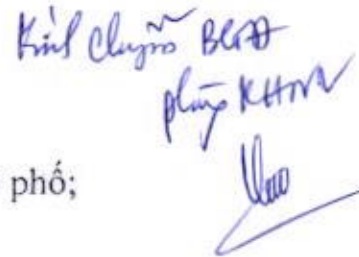 Kính chuyển BGĐ
phòng KHTH
phố;